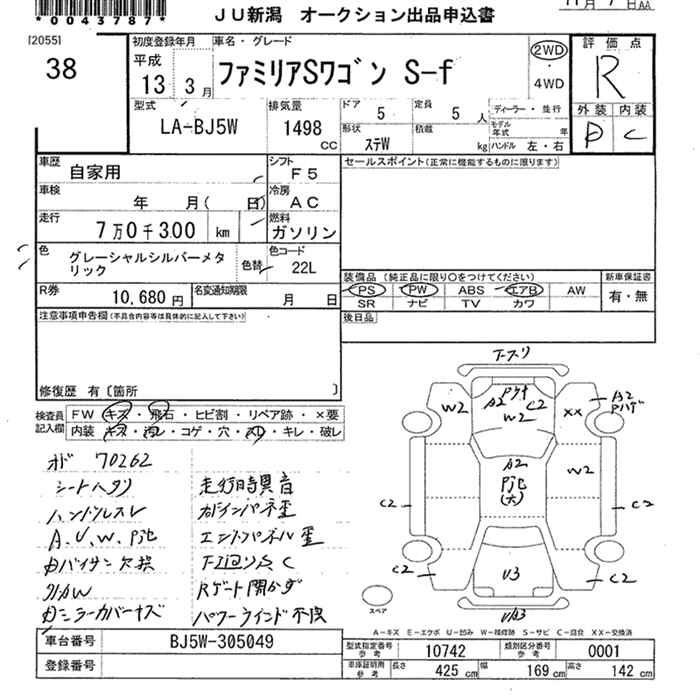 *0043787*
JU新潟 オークション出品申込書
11月 7日AA
[2055]
38
初度登録年月
平成
13 3月
車名・グレード
ファミリアSワゴン S-f
2WD
・
4WD
評価点
R
外装 内装
D C
型式
LA-BJ5W
排気量
1498
cc
ドア
5
定員
5 人
形状
ステW
積載
kg
ディーラー・並行
モデル年式 年
ハンドル 左・右
車歴
自家用
シフト
F5
車検
年 月( 日)
冷房
AC
走行
7万0千300 km
燃料
ガソリン
色
グレーシャルシルバーメタ
リック
色替
色コード
22L
R券
10,680 円
名変通知期限
月 日
セールスポイント(正常に機能するものに限ります)
装備品(純正品に限り○をつけてください)
PS ・ PW ・ ABS ・ エアB ・ AW
SR ナビ TV カワ
新車保証書
有・無
後日品
注意事項申告欄(不具合内容等は具体的に記入して下さい)
修復歴 有〔箇所 〕
検査員
記入欄
FW キズ・飛石・ヒビ割・リペア跡・×要
内装 キズ・汚レ・コゲ・穴・スリ・キレ・破レ
メーター 70262
シートヘタリ
ハンドルスレ
走行時異音
パワーウインド不良
W2
A2
C2
W2
XX
A2
W2
A2
C2
C2
C2
C2
V3
スペア
A-キズ E-エクボ U-凹み W-補修跡 S-サビ C-腐食 XX-交換済
車台番号
BJ5W-305049
登録番号
型式指定番号
参考
10742
類別区分番号
参考
0001
車庫証明用
参考
長さ 425 cm
幅 169 cm
高さ 142 cm